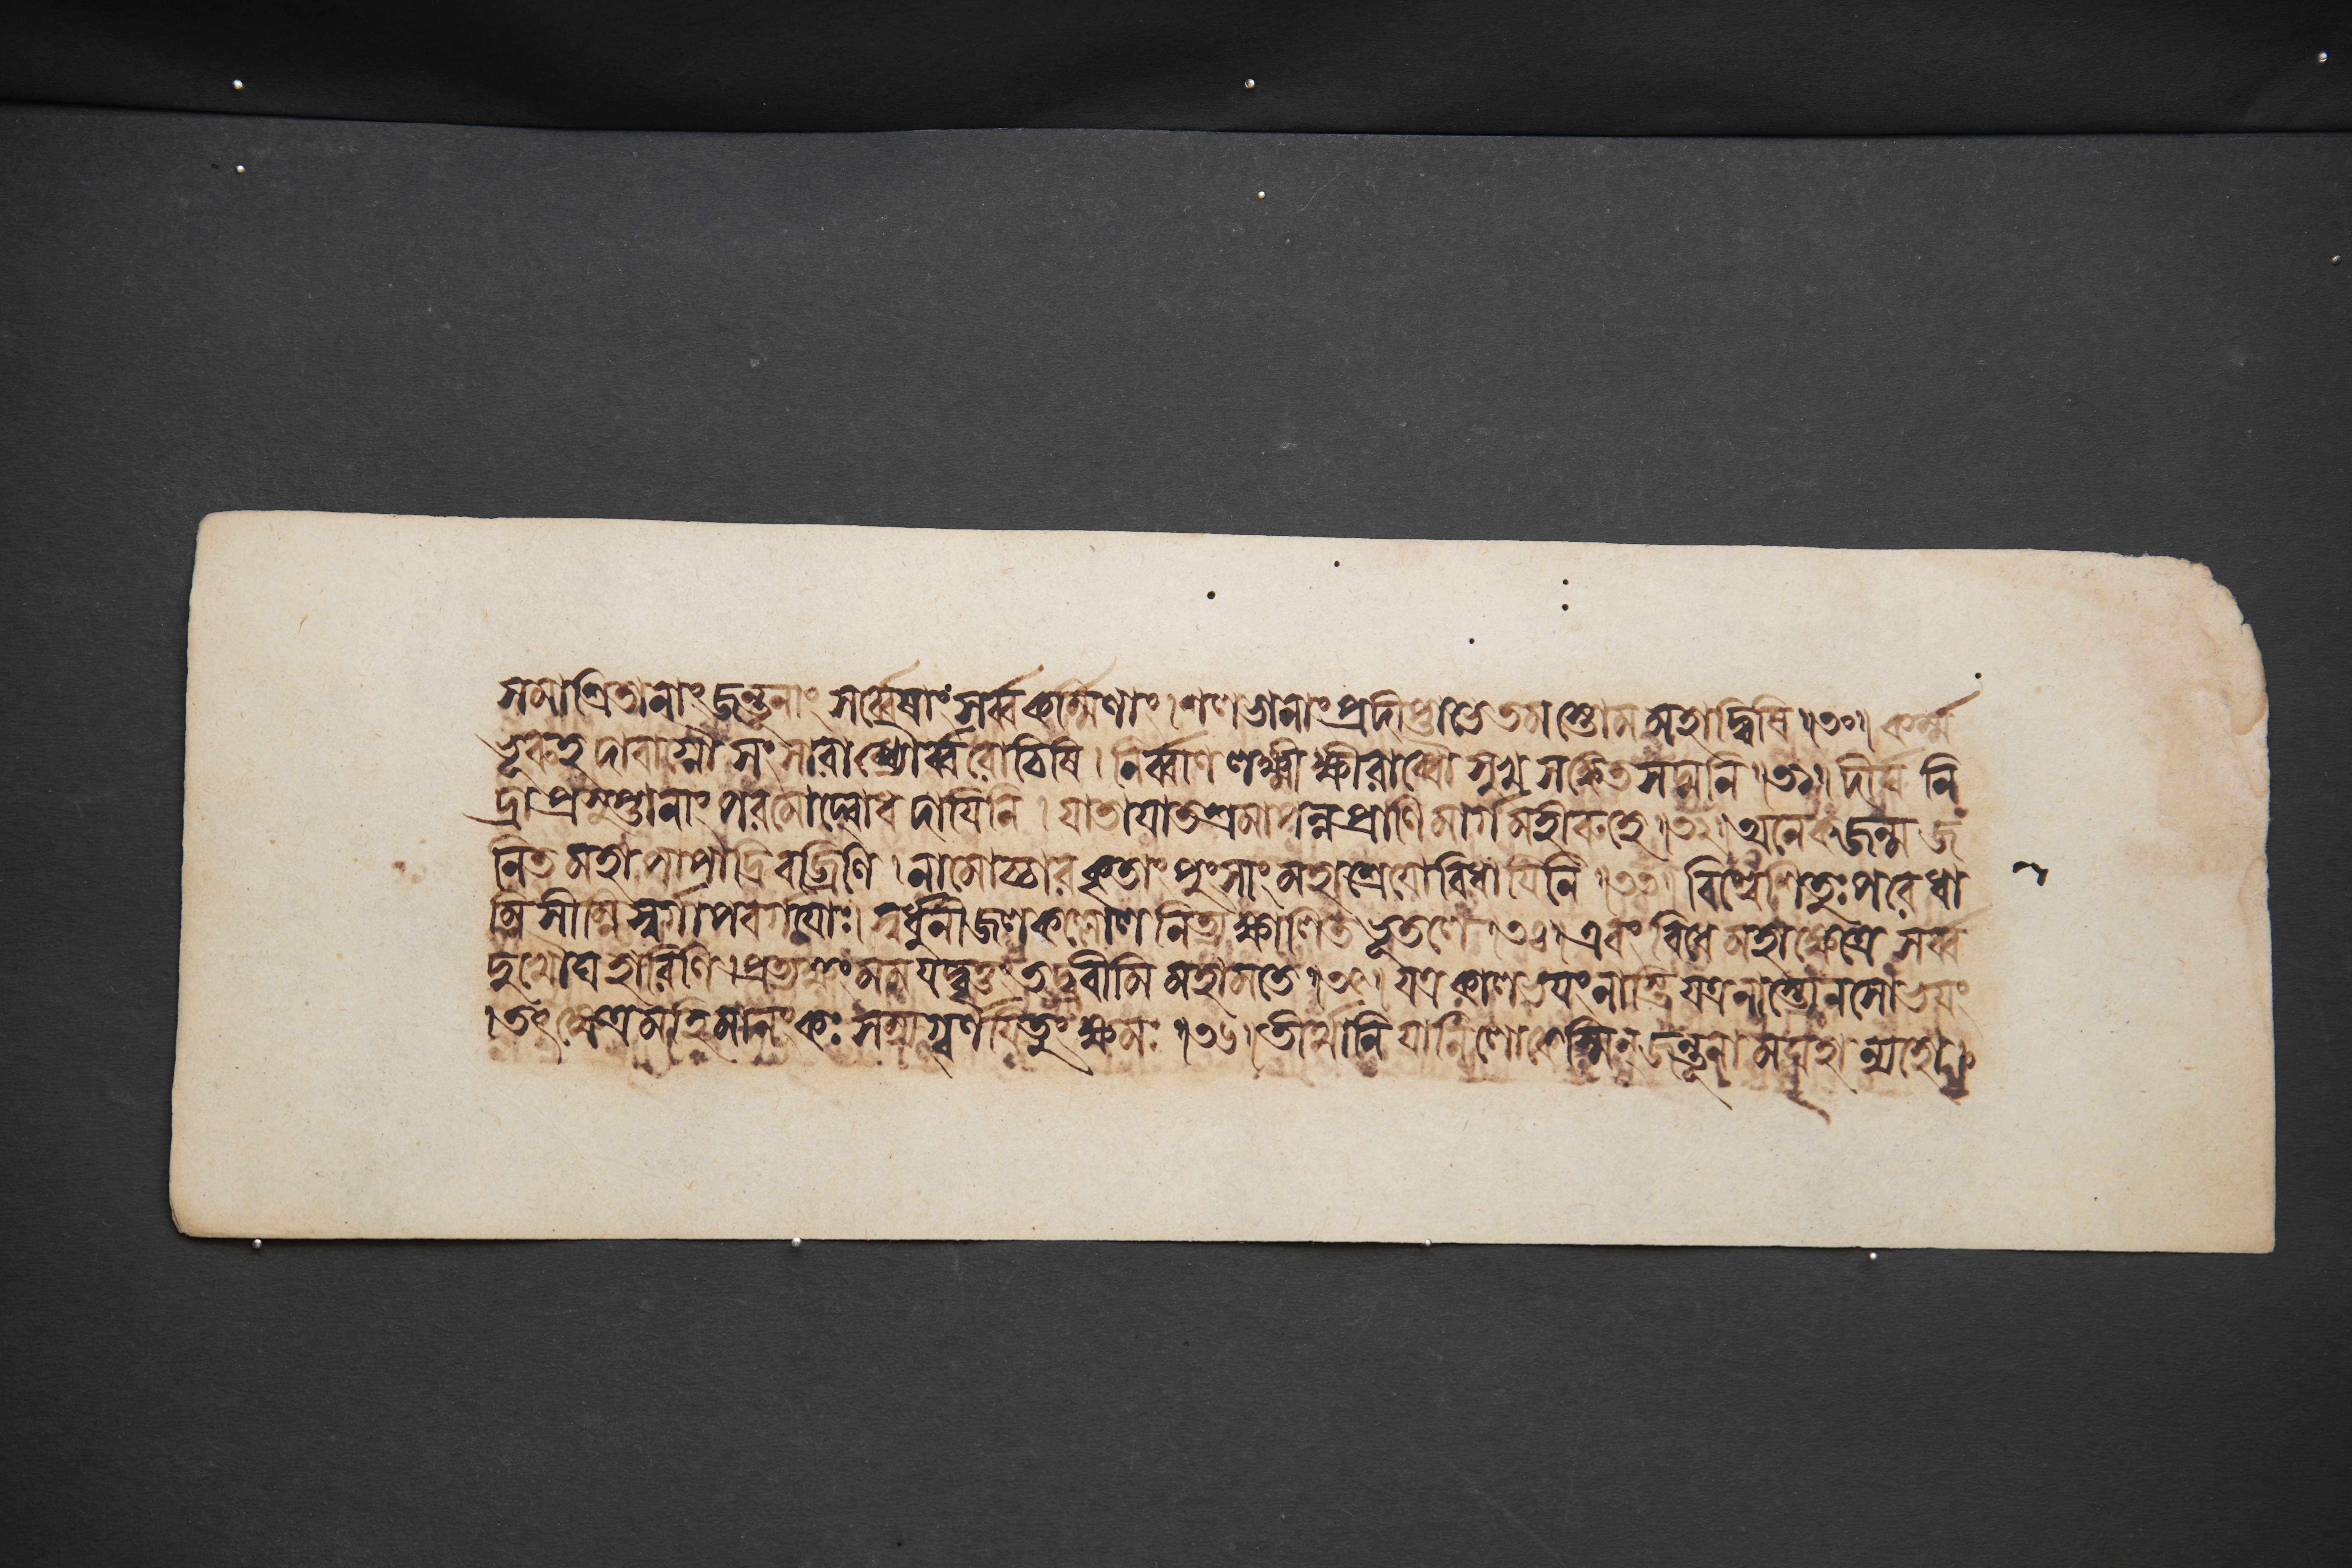 সমাশ্রিতানাং জন্তুনাং সর্ব্বেষাং সর্ব্বকর্ম্মিণাং। শলভানাং প্রদীপ্তাভে তমস্তোমমহাদ্বিষি॥৩০॥ কর্ম্ম
ভূরুহদাবাগ্নৌ সংসারাব্ধ্যৌর্ব্বরোচিষি। নির্ব্বাণলক্ষ্মীক্ষীরাব্ধৌ সুখসঙ্কেতসদ্মনি॥৩১॥ দীর্ঘনি
দ্রাপ্রসুপ্তানাং পরমোদ্বোধদাযিনি। যাতাযাতশ্রমাপন্নপ্রাণিমার্গমহীরুহে॥৩২॥ অনেকজন্মজ
নিতমহাপাপাদ্রিবজ্রিণি। নামোচ্চারকৃতাং পুংসাং মহাশ্রেযোবিধাযিনি॥৩৩॥ বিশ্বেশিতুঃ পরে ধা
ম্নি সীম্নি স্বর্গাপবর্গযোঃ। স্বর্ধুনীজলকল্লোলনিত্যক্ষালিতভূতলে॥৩৪॥ এবংবিধে মহাক্ষেত্রে সর্ব্ব
দুখৌঘহারিণি। প্রত্যক্ষং মম যদ্বৃত্তং তদ্ব্রবীমি মহামতে॥৩৫॥ যত্র কালভযং নাস্তি যত্র নাস্ত্যেনসো ভযং
।তৎক্ষেত্রমহিমানং কঃ সম্যগ্বর্ণযিতুং ক্ষমঃ॥৩৬॥ তীর্থানি যানি লোকেস্মিন্ জন্তূনামঘহান্যহো।